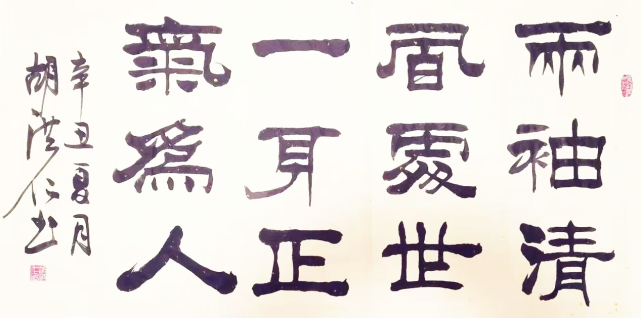 兩袖清
風處世
一身正
氣為人
辛丑夏月
胡洪仁书